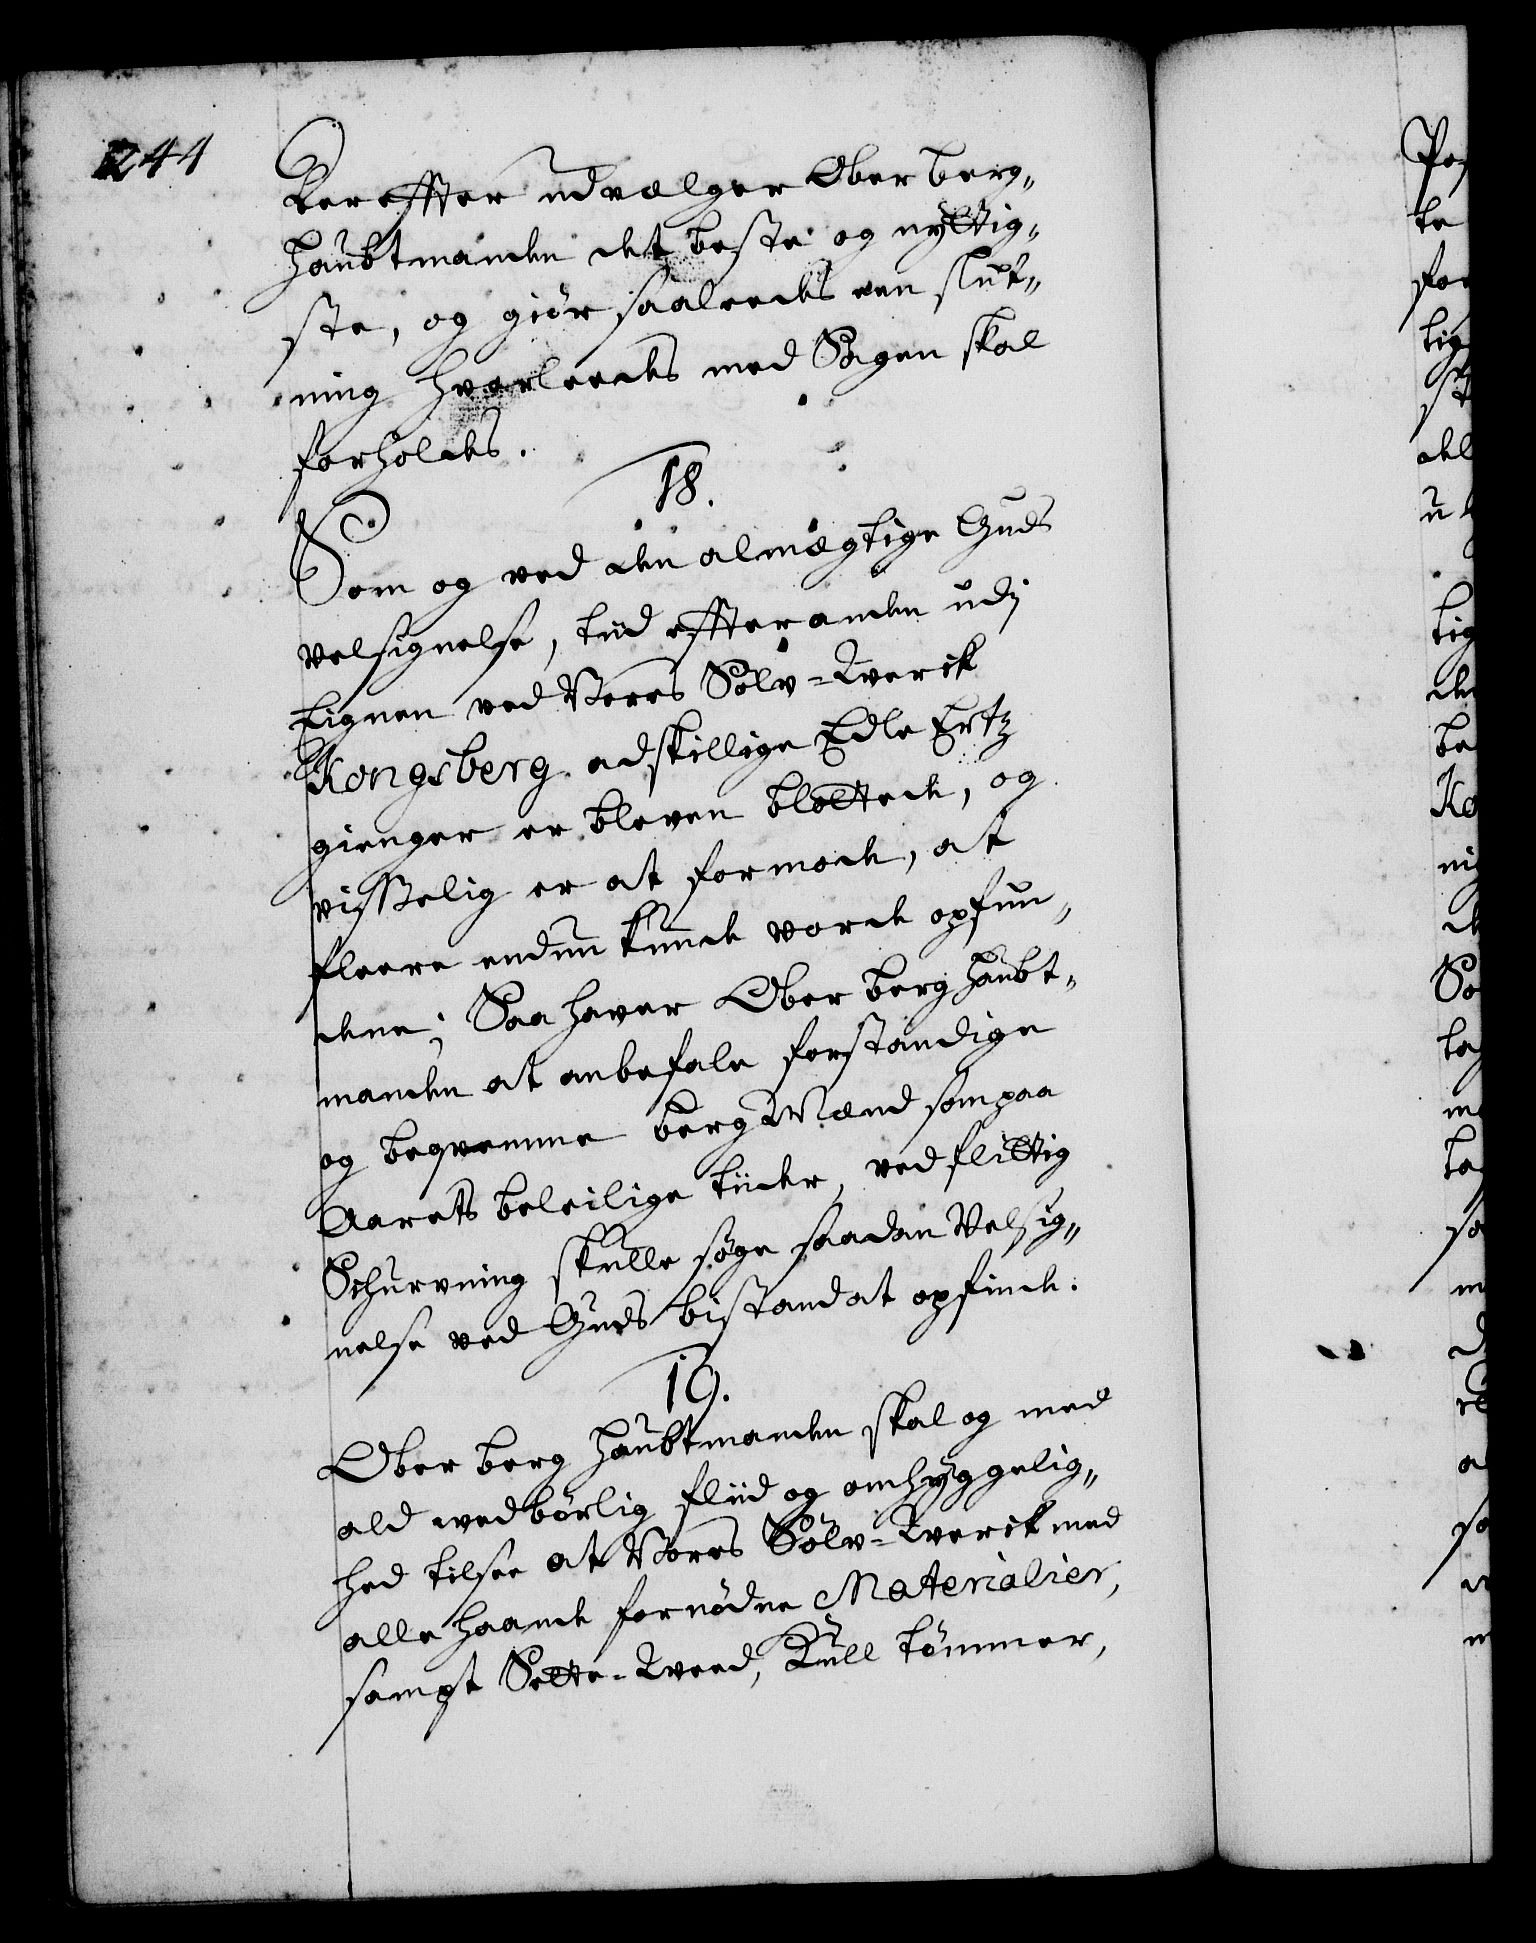 244
Dereffter udvælger Ober berg-
haubtmanden det beste og nyttig-
ste, og giör saaleedes een slut-
ning hvorleedes med Sagen skal
forholdes.
18.
Som og ved den almægtige Guds
velsignelse, tiid effter anden udj
Eignen ved Vores Sölv-Werck
Kongsberg adskillige Edle Ertz
gienger er bleven blottede, og
visselig er at formode, at
fleere endnu kunde vorde opfun-
dene; Saa haver Ober berg haubt-
manden at anbefale forstandige
og beqvemme berg Mænd som paa
Aarets beleilige tiider, ved flittig
Schurvning skulle söge saadan Velsig-
nelse ved Guds bistand at opfinde.
19.
Ober berg haubtmanden skal og med
ald vedbörlig fliid og omhyggelig-
hed tilsee at Vores Sölv-Werck med
alle haande fornödne Materialier,
sampt Sette-Weed, Kull tömmer,